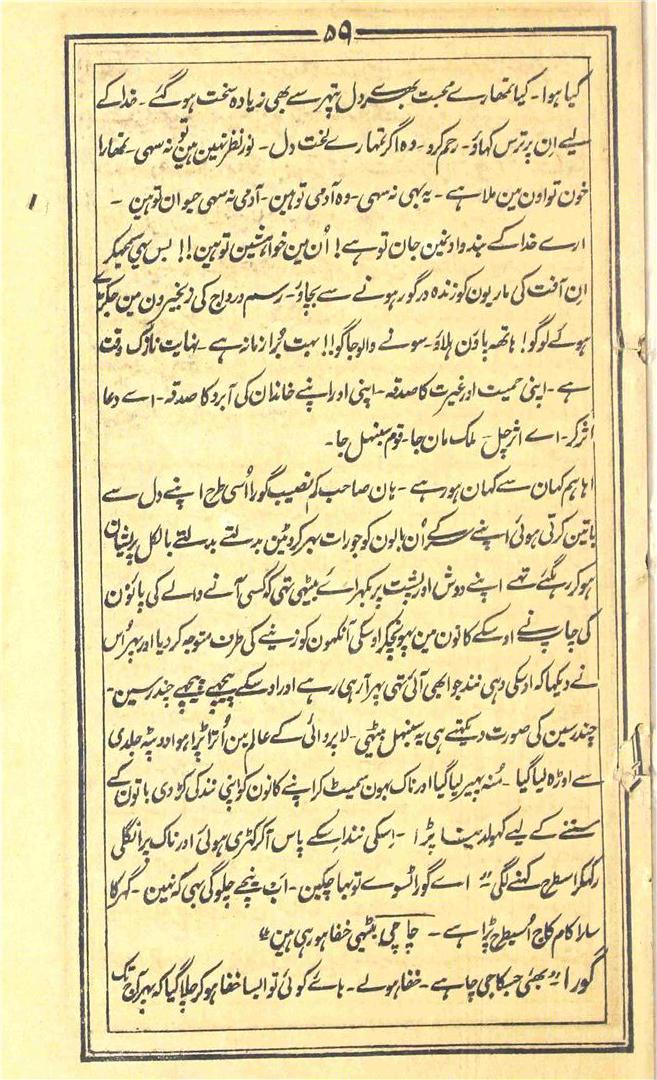 ۵۹
کیا ہوا۔ کیا تمھارے محبت بھرے دل پتھر سے بھی زیادہ سخت ہو گئے۔ خدا کے
لیے ان پر ترس کھاؤ۔ رحم کرو۔ وہ اگر تمہارے لخت دل۔ نور نظر نہین ہین تو نہ سہی۔ تمھارا
خون تو اون مین ملا ہے۔ یہ بھی نہ سہی۔ وہ آدمی تو ہین۔ آدمی نہ سہی حیوان تو ہین۔
ارے خدا کے بندو اونمین جان تو ہے! اُن مین خواہشین تو ہین!! بس یہی سمجھکر
اِن آفت کی ماریون کو زندہ درگور ہونے سے بچاؤ۔ رسم و رواج کی زنجیرون مین جکڑے
ہوئے لوگو! ہاتھ پاؤن ہلاؤ۔ سونے والو جاگو!! بہت بُرا زمانہ ہے۔ نہایت نازک وقت
ہے۔ اپنی حمیت اور غیرت کا صدقہ۔ اپنی اور اپنے خاندان کی آبرو کا صدقہ۔ اے دعا
اثر کر۔ اے اثر چل۔ ملک مان جا۔ قوم سنبھل جا۔
اہا ہم کہان سے کہان ہو رہے۔ ہان صاحب کم نصیب گورا اُسی طرح اپنے دل سے
باتین کرتی ہوئی اپنے سر کے اُن بالون کو جو رات بھر کروٹین بدلتے بدلتے بالکل پریشان
ہو کر رہ گئے تھے اپنے دوش اور پشت پر بکھرائے بیٹھی تھی کہ کسی آنے والے کی پاؤن
کی چاپ نے اوسکے کانون مین پہونچکر اوسکی آنکھون کو زینے کی طرف متوجہ کر دیا اور پھر اُس
نے دیکھا کہ اوسکی وہی نند جو ابھی آئی تھی پھر آ رہی رہے اور اوسکے پیچھے پیچھے چندر سین۔
چندر سین کی صورت دیکھتے ہی یہ سنبھل بیٹھی۔ لاپروائی کے عالم مین اُترا پڑا ہوا دوپٹہ جلدی
سے اوڑہ لیا گیا۔ مُنہ پھیر لیا گیا اور ناک بھون سمیٹ کر اپنے کانون کو اپنی نند کی کڑوی باتون کے
سننے کے لیے کھولدینا پڑا۔ اِسکی نند اِسکے پاس آکر کھڑی ہوئی اور ناک پر انگلی
رکھکر اسطرح کہنے لگی" اے گورا ٹسوے تو بہا چکین۔ اب نیچے چلو گی بھی کہ نہین۔ گھر کا
سارا کام کاج اُسیطرح پڑا ہے۔ چاچی بیٹھی خفا ہو رہی ہین"
گورا "بھئی جسکا جی چاہے۔ خفا ہولے۔ ہائے کوئی تو ایسا خفا ہو کر چلا گیا کہ پھر آج تک